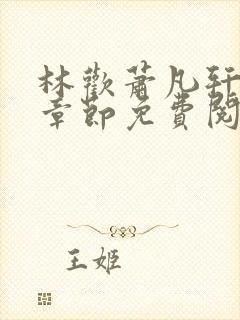 林歡蕭凡轩
章節免費閱
王姬